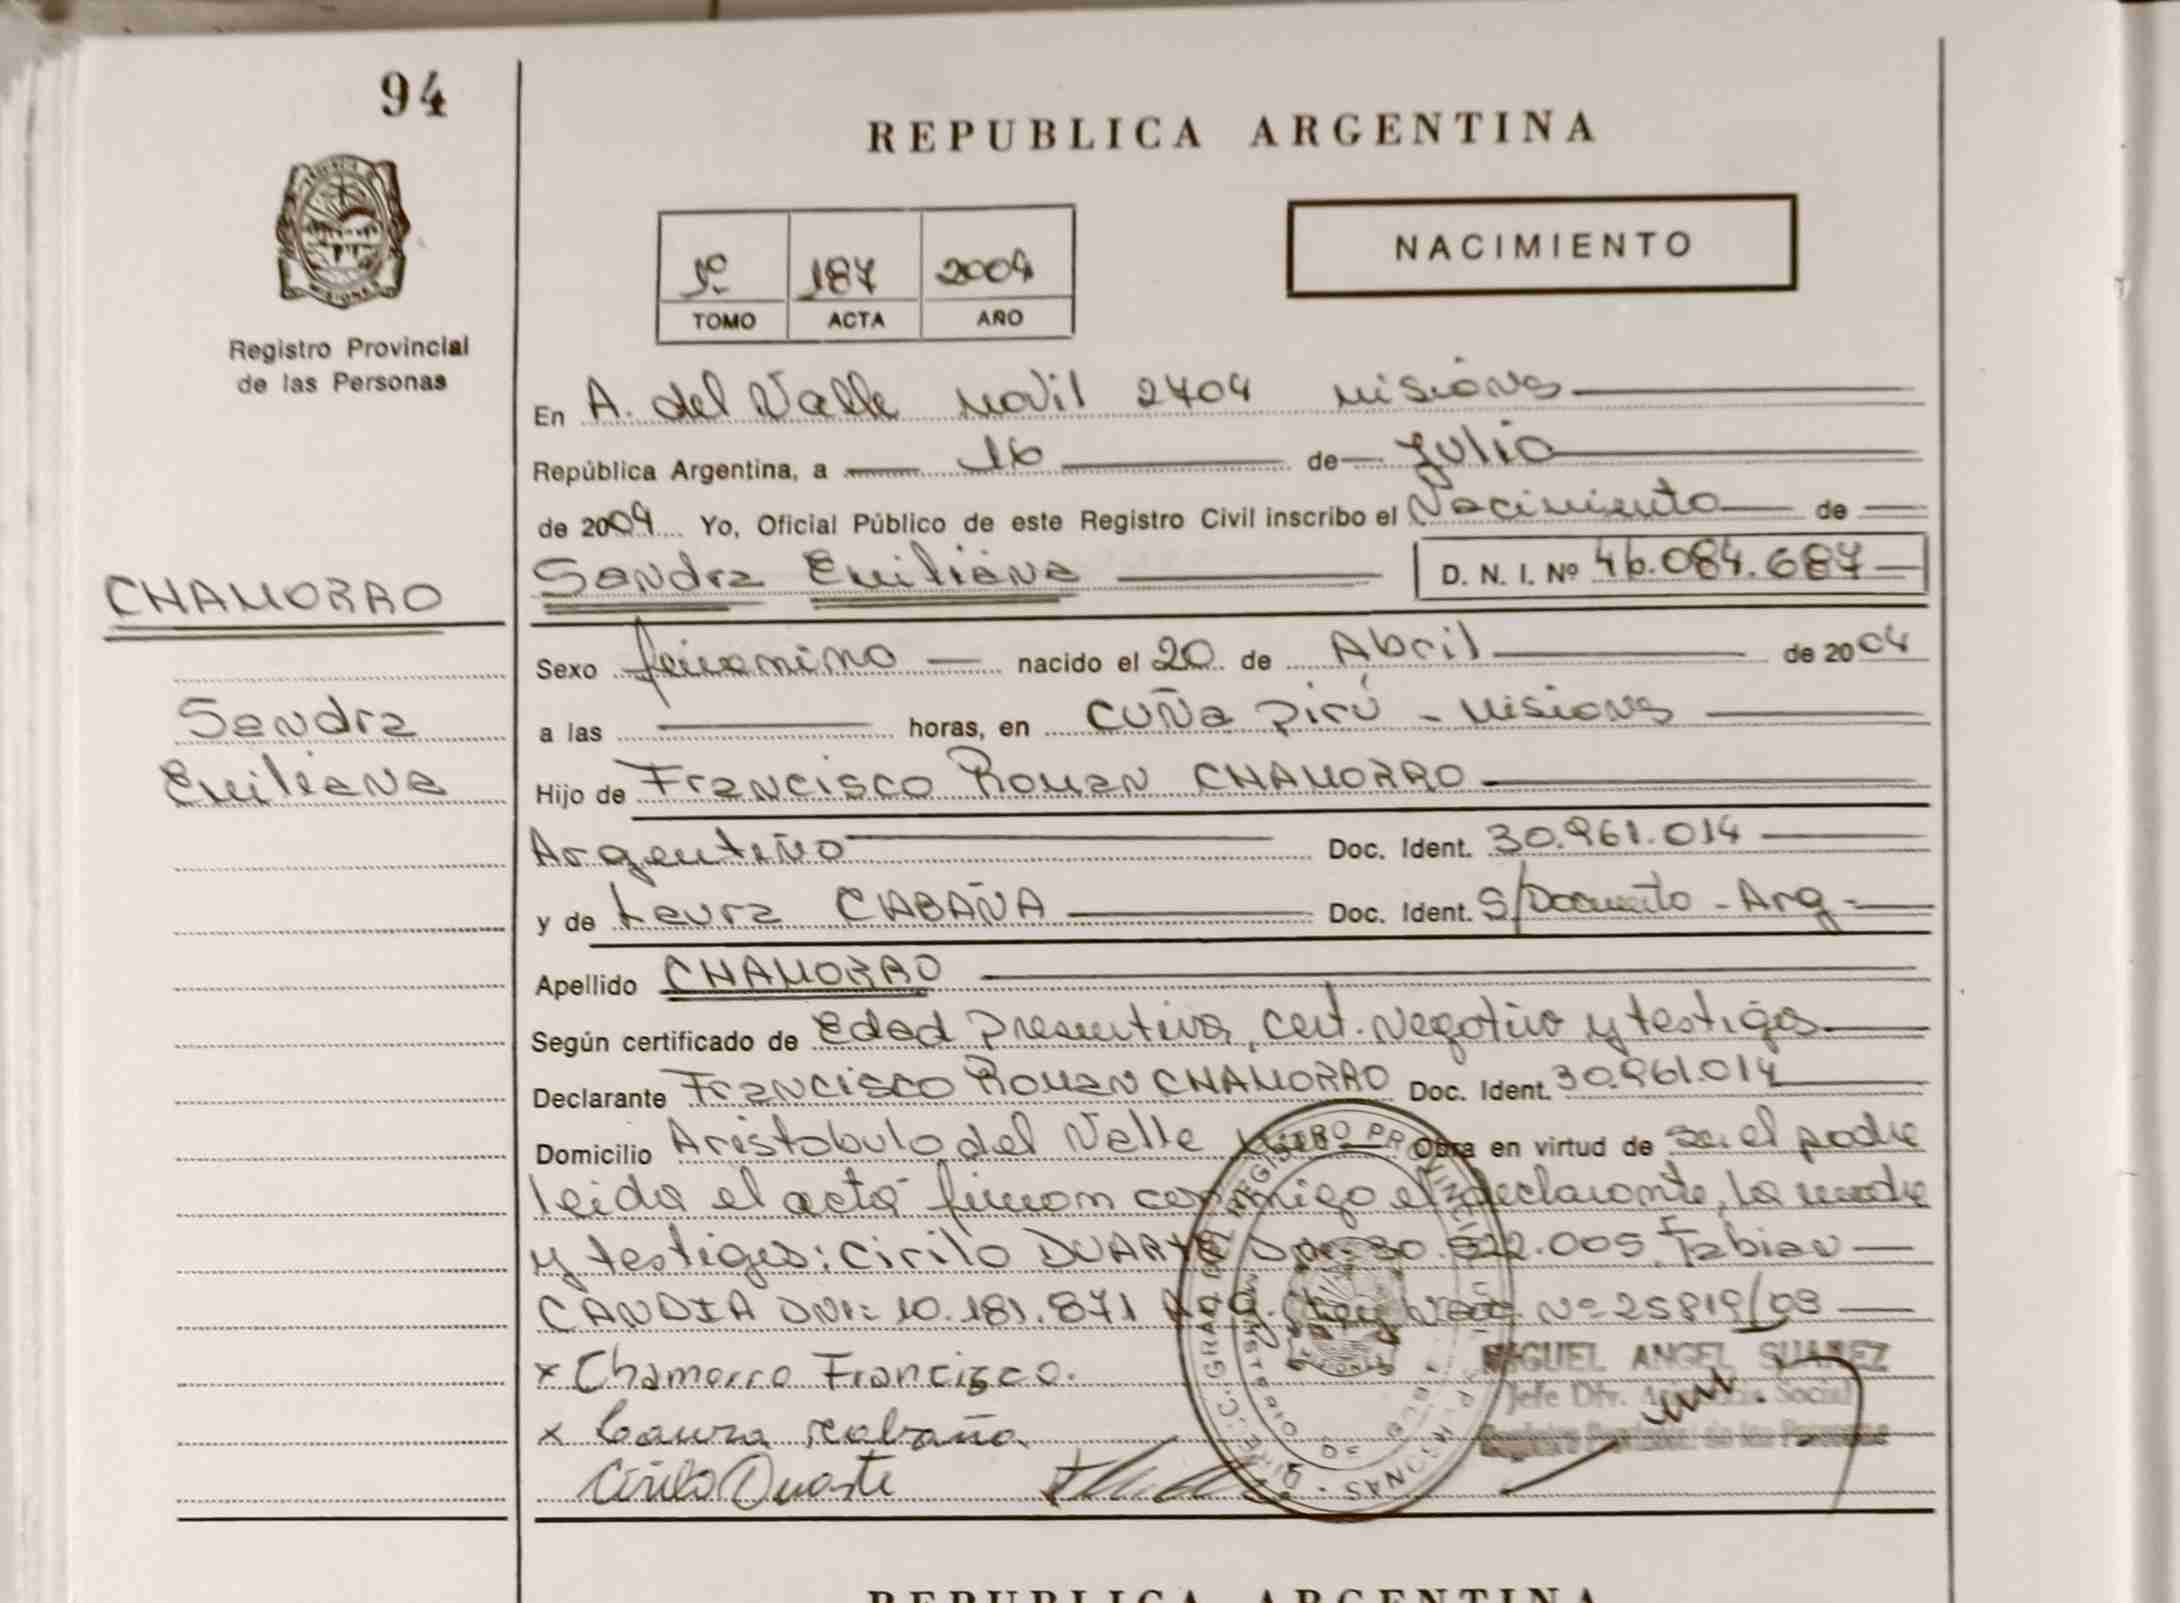 94
REPUBLICA ARGENTINA
NACIMIENTO
1º 187 2009
TOMO ACTA AÑO
Registro Provincial
de las Personas
En A. del Valle Movil 2404 Misiones
República Argentina, a 16 de Julio
de 2009 Yo, Oficial Público de este Registro Civil inscribo el Nacimiento de
Sandra Emiliana D. N. I. Nº 46.084.687
CHAMORRO
Sandra
Emiliana
Sexo femenino nacido el 20 de Abril de 2004
a las horas, en Cuña Pirú - Misiones
Hijo de Francisco Roman CHAMORRO
Argentino Doc. Ident. 30.961.014
y de Laura CABAÑA Doc. Ident. S/Documento - Arg -
Apellido CHAMORRO
Según certificado de Edad Presuntiva, cert. Negativo y testigos
Declarante Francisco Roman CHAMORRO Doc. Ident. 30.961.014
Domicilio Aristobulo del Valle Obra en virtud de ser el padre
leida el acta firman conmigo el declarante, la madre
y testigos: Cirilo DUARTE DNI: 30.522.005 Fabian
CANDIA DNI: 10.181.871 Arg. Nº 25819/09
x Chamorro Francisco.
x Laura Cabaña
Cirilo Duarte
MIGUEL ANGEL SUAREZ
Jefe Div. Social
Registro Provincial de las Personas
REPUBLICA ARGENTINA